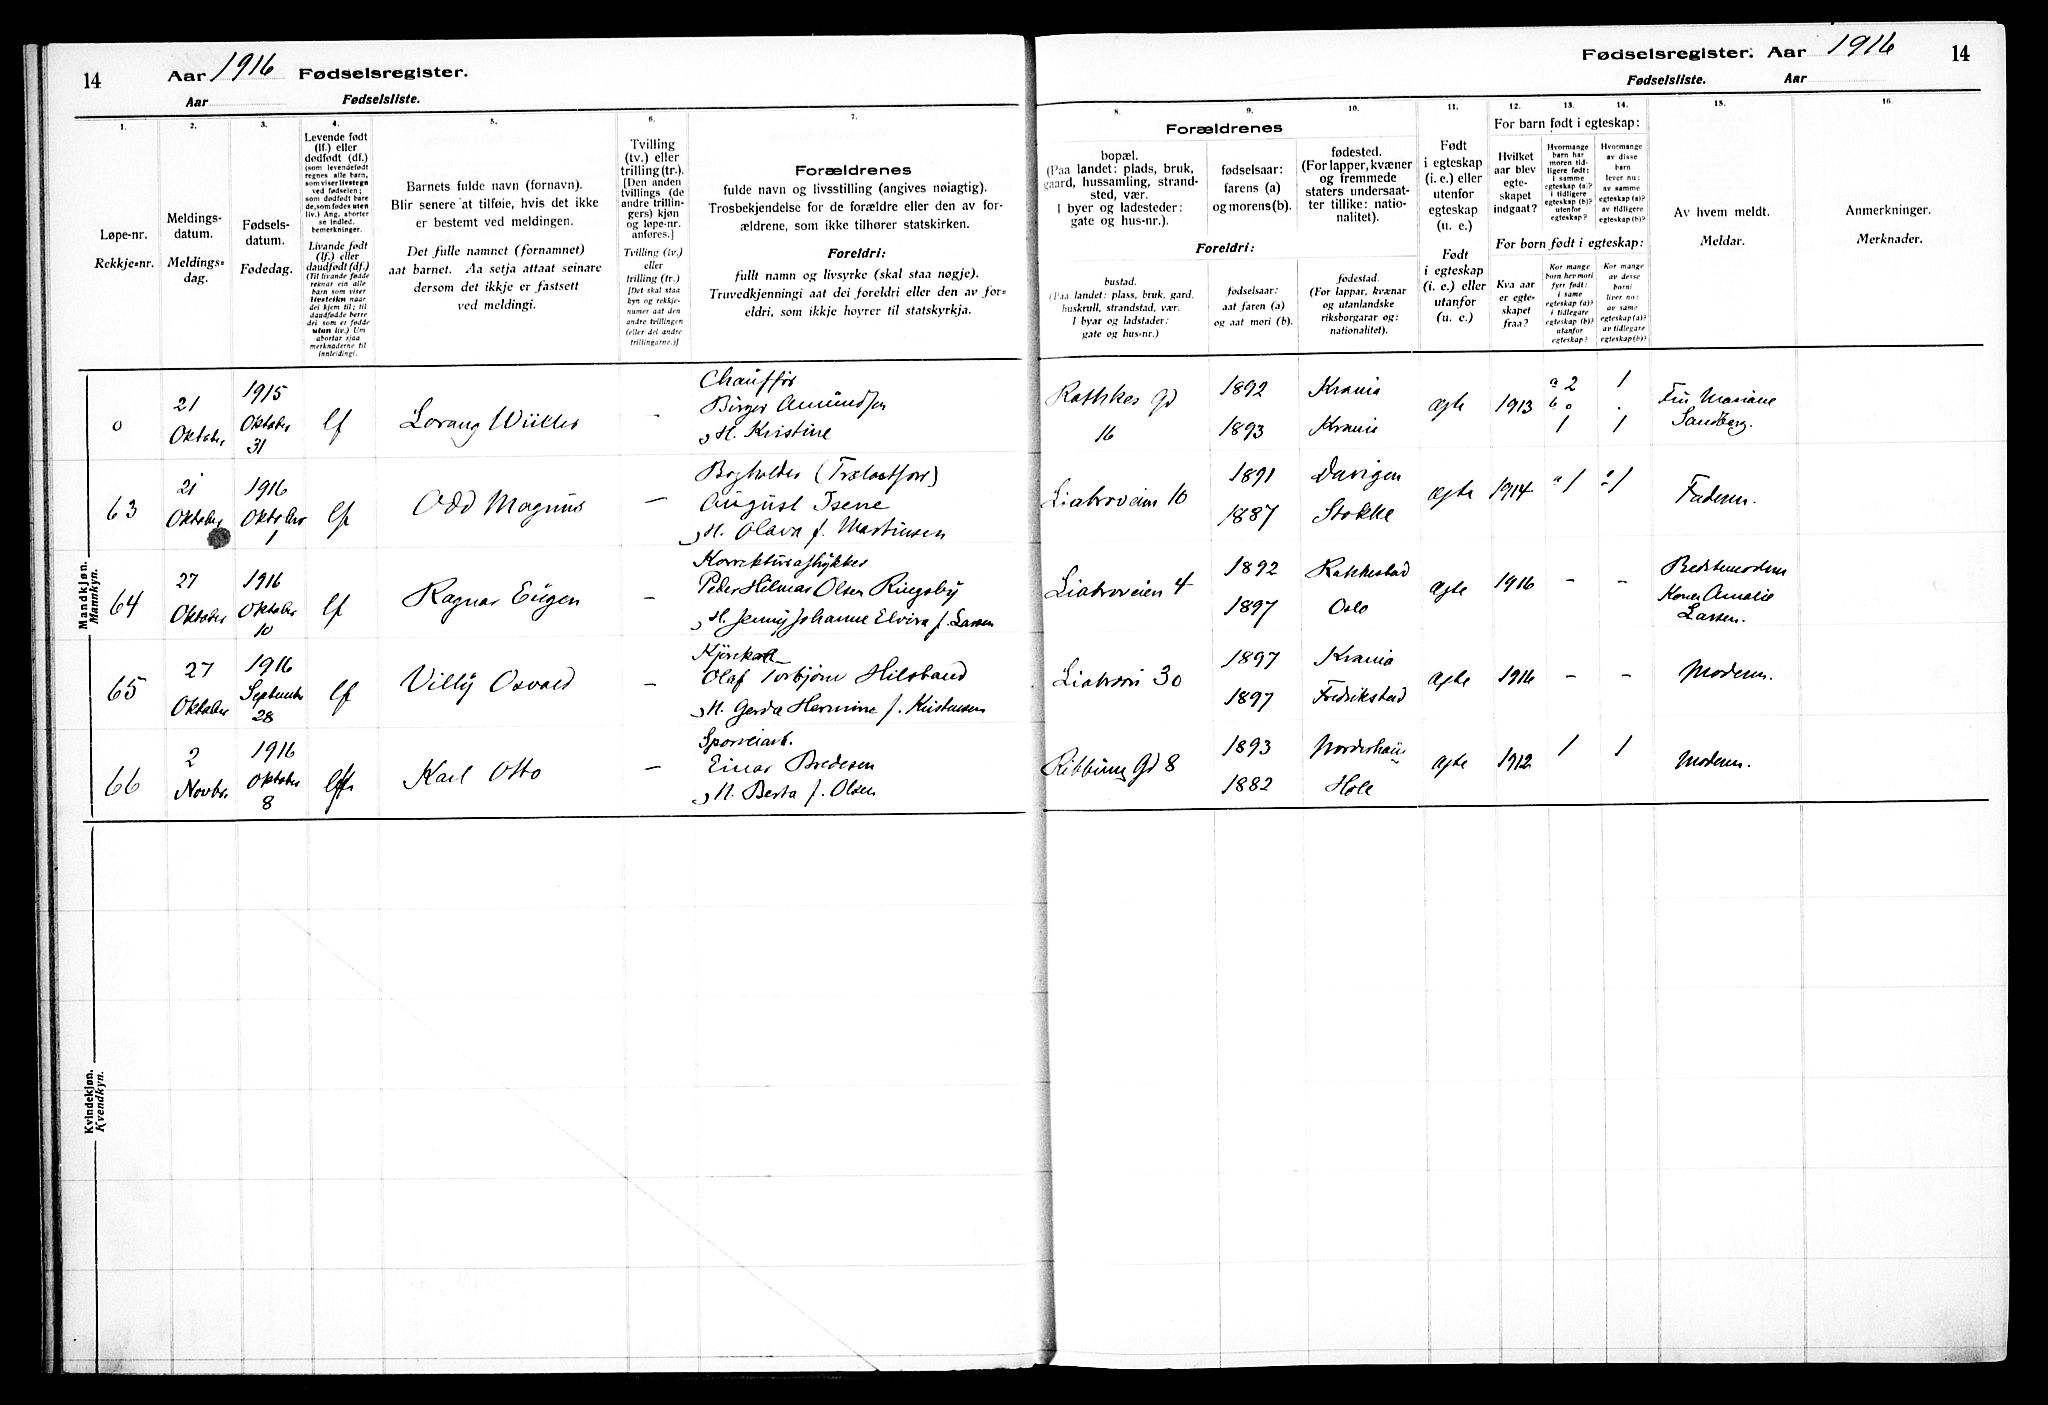 14
Aar 1916 Fødselsregister.
Aar Fødselsliste.
1.
2.
3.
4.
5.
6.
7.
Løpe-nr.
Rekkje-nr.
Meldings-
datum.
Meldings-
dag.
Fødsels-
datum.
Fødedag.
Levende født
(lf.) eller
dødfødt (df.)
(som levendefødt
regnes alle barn,
som viser livstegn
ved fødselen;
som dødfødt bare
de, som fødes uten
liv.) Ang. aborter
se indled.
bemerkninger.
Livande født
(lf.) eller
daudfødt (df.)
(Til livande fødde
reknar ein alle
barn som viser
livsteikn naar
dei kjem til; til
daudfødde berre
dei som er fødde
utan liv.) Um
abortar sjaa
merknaderne til
innleidingi.
Barnets fulde navn (fornavn).
Blir senere at tilføie, hvis det ikke
er bestemt ved meldingen.
Det fulle namnet (fornamnet)
aat barnet. Aa setja attaat seinare
dersom det ikkje er fastsett
ved meldingi.
Tvilling
(tv.) eller
trilling (tr.).
[Den anden
tvillings (de
andre trillin-
gers) kjøn
og løpe-nr.
anføres.]
Tvilling (tv.)
eller
trilling (tr.)
[Det skal staa
kyn og rekkje-
numer aat den
andre tvillingen
(eller dei andre
trillingarne.)]
Forældrenes
fulde navn og livsstilling (angives nøiagtig).
Trosbekjendelse for de forældre eller den av for-
ældrene, som ikke tilhører statskirken.
Foreldri:
fullt namn og livsyrke (skal staa nøgje).
Truvedkjenningi aat dei foreldri eller den av for-
eldri, som ikkje høyrer til statskyrkja.
Mandkjøn.
Mannkyn.
0
21
Oktober
1915
Oktober
31
lf
Lorang
–
Chauffør
Birger Amundsen
H. Kristine
63
21
Oktober
1916
Oktober
1
lf
Odd Magnus
–
Bogholder
August Isene
H. Olava f. Martinsen
64
27
Oktober
1916
Oktober
10
lf
Ragnar Eugen
–
Peder Hilmar Olsen Ringsby
H. Jenny Johanne Elvira f. Larsen
65
27
Oktober
1916
September
28
lf
Villy Osvald
–
Olaf Torbjørn
H. Gerda Hermine f. Kristensen
66
2
Novbr
1916
Oktober
8
lf
Karl Otto
–
Sporveiarb.
Einar Bredesen
H. Berta f. Olsen
Kvindekjøn.
Kvendkyn.
Fødselsregister. Aar 1916 14
Fødselsliste. Aar
8.
9.
10.
11.
12.
13.
14.
15.
16.
Forældrenes
bopæl.
(Paa landet: plads, bruk,
gaard, hussamling, strand-
sted, vær.
I byer og ladesteder:
gate og hus-nr.).
Foreldri:
bustad.
(Paa landet: plass, bruk, gard.
huskrull, strandstad, vær.
I byar og ladstader:
gate og hus-nr.)
fødselsaar:
farens (a)
og morens (b).
fødselsaar:
aat faren (a)
og aat mori (b).
fødested.
(For lapper, kvæner
og fremmede
staters undersaat-
ter tillike: natio-
nalitet).
fødestad.
(For lappar, kvænar
og utanlandske
riksborgarar og:
nationalitet).
Født
i egteskap
(i. e.) eller
utenfor
egteskap
(u. e.)
Født
i egteskap
(i. e.) eller
utanfor
(u. e.)
For barn født i egteskap:
Hvilket
aar blev
egte-
skapet
indgaat?
For born født i egteskap:
Kva aar
er egte-
skapet
fraa?
Hvormange
barn har
moren tid-
ligere født:
i samme
egteskap (a)?
i tidligere
egteskap (b)?
utenfor
egteskap?
Kor mange
born hev mori
fyrr født:
i same
egteskap (a)?
i tidlegare
egteskap (b)?
utanfor
egteskap?
Hvormange
av disse
barn
lever nu:
av samme
egteskap (a)?
av tidligere
egteskap (b)?
Kor mange
av desse
borni
liver no:
av same
egteskap (a)?
av tidlegare
egteskap (b)?
Av hvem meldt.
Meldar.
Anmerkninger.
Merknader.
Rathkes Gd
16
1892
1893
Krania
Krania
ægte
1913
a 2
b 0
1
1
.
1
Fru Mariane
Sandberg.
Liabroveien 10
1891
1887
Stokke
ægte
1914
a 1
a 1
Faderen.
Liabroveien 4
1892
1897
Rakkestad
Oslo
ægte
1916
–
–
Bedstemoderen
Kone Amalie
Larsen.
30
1897
1897
Krania
Fredrikstad
ægte
1916
–
–
Moderen.
Gd 8
1893
1882
Norderhov
Hole
ægte
1912
1
1
Moderen.